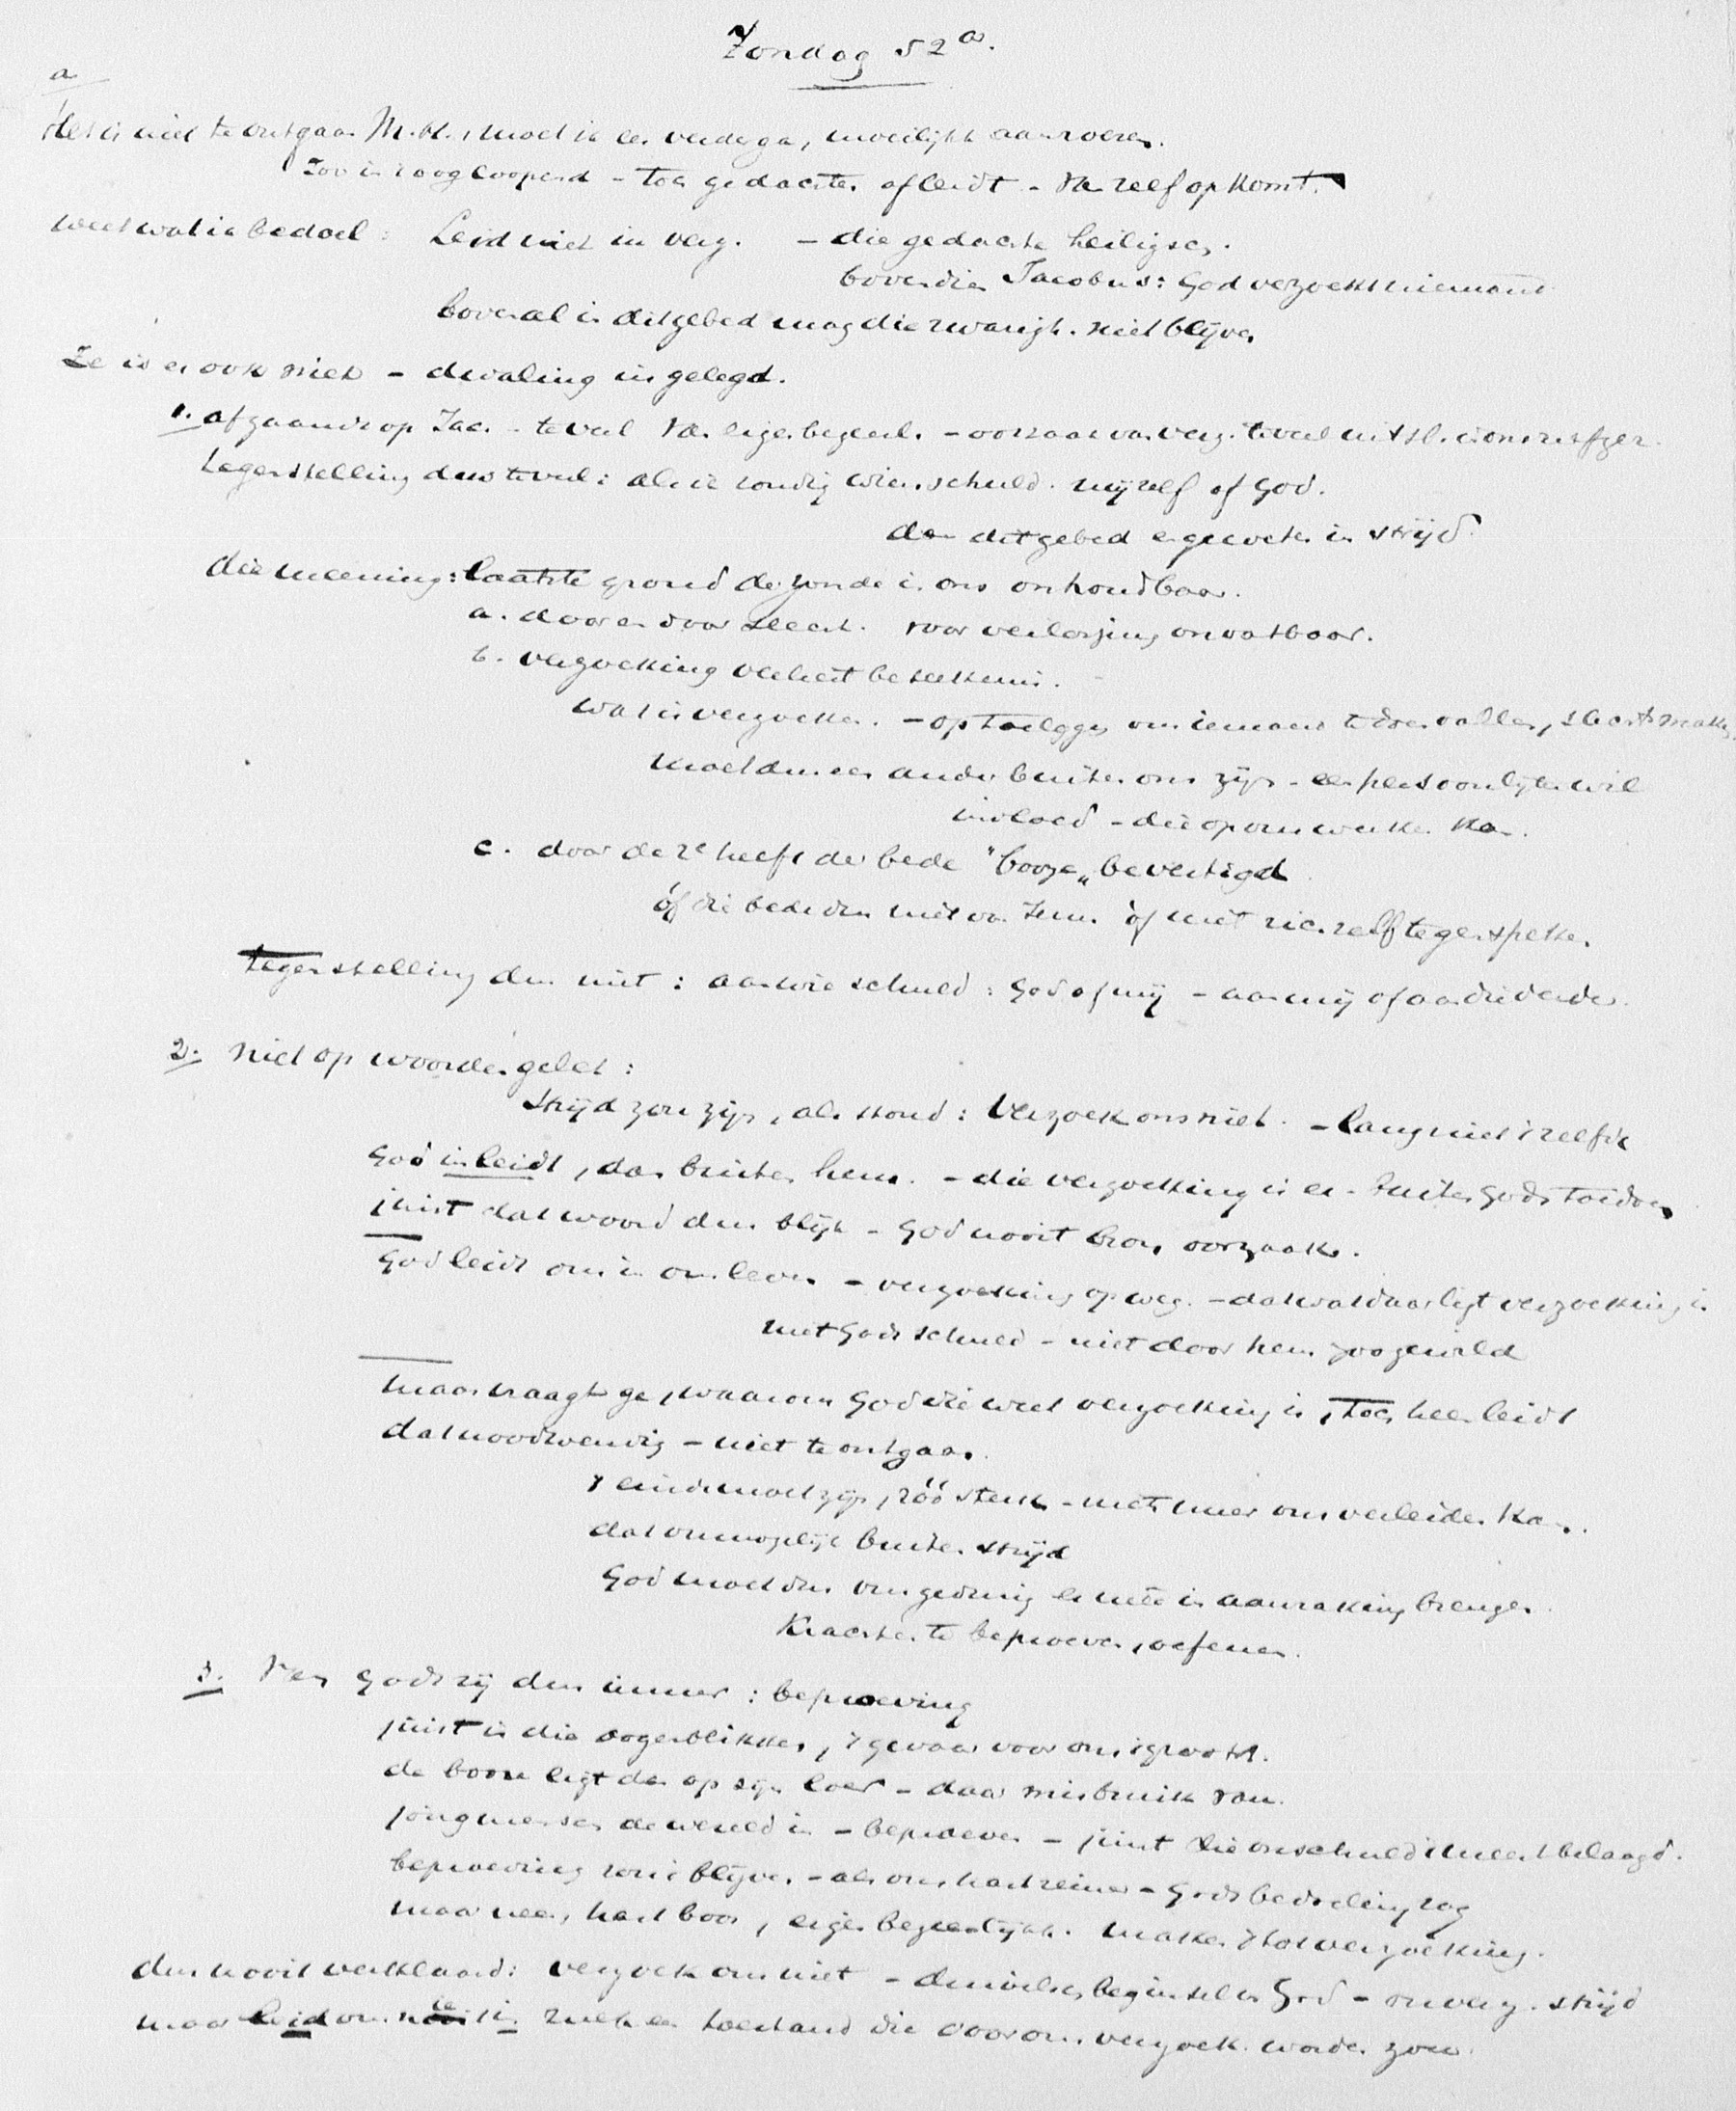 Zondag 52a.
a
Het is niet te ontgaan M.H., moet ik eer verder ga, moeilijkh aanroeren.
zoo in 't oog loopend - toch gedachten afleidt - van zelf opkomt.
weet wat ik bedoel: Leid niet in verz. - die gedachte heiligsch.
bovendien Jacobus: God verzoekt niemand
bovenal in dit gebed mag die zwarigh. niet blijven
Ze is er ook niet - dwaling ingelegd.
1. afgaande op Jac. - te veel van eigen begeerl. - oorzaak van verz. te veel uitsl. in ons zelf gez.
tegenstelling dus te veel: als ik zondig wien schuld. mijzelf of God.
dan dit gebed en geweten in strijd.
die meening: laatste grond der zonde in ons onhoudbaar.
a. door en door slecht. voor verlossing onvatbaar.
b. verzoeking verliest beteekenis.
wat is verzoeken. - op toeleggen om iemand te doen vallen, slecht maken.
moet dus een ander buiten ons zijn - een persoonlijken wil
invloed - die op ons werken kan.
c. door de 2e helft der bede "booze" bevestigd
óf die bede dus niet van Jezus óf met zich zelf tegenspreken.
tegenstelling dus niet: aan wie schuld: God of mij - aan mij of aan die derde.
2. Niet op woorden gelet:
Strijd zou zijn, als stond: Verzoek ons niet. - lang niet 't zelfde
God inleidt, dan buiten hem. - die verzoeking is er - buiten Gods toedoen
juist dat woord dus blijk - God nooit bron, oorzaak.
God leidt ons in ons leven - verzoeking op weg. - dat wat daar ligt verzoeking is
niet Gods schuld - niet door hem zoo gewild
maar vraagt ge, waarom God die weet verzoeking is, toch heen leidt
dat noodwendig - niet te ontgaan.
't einde moet zijn, zóó sterk - niets meer ons verleiden kan.
dat onmogelijk buiten strijd
God moet dus ons gedurig er mede in aanraking brengen.
Krachten te beproeven, oefenen.
3. Van Gods zij dus immer: beproeving
juist in die oogenblikken, 't gevaar voor ons 't grootst.
de booze ligt dan op zijn loer - daar misbruik van.
jong mensch de wereld in - beproeven - juist die onschuld 't meest belaagd.
beproeving zou 't blijven - als ons hart reiner - Gods bedoeling zag
maar neen, hart boos, eigen begeerlijkh. maken 't tot verzoeking.
dus nooit verklaard: verzoek ons niet - duivelsch beginsel in God - onverz. strijd
maar leid ons niet in zulk een toestand die voor ons verzoek. worden zou.